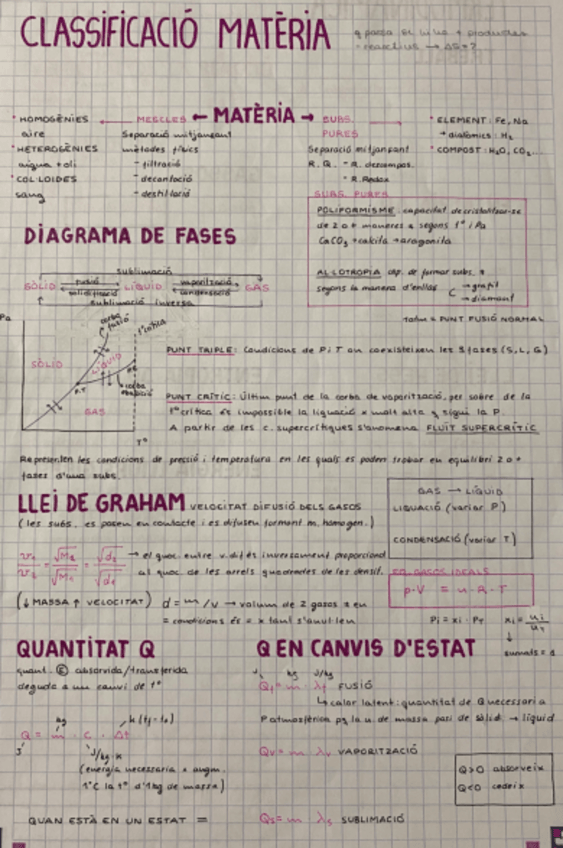 CLASSIFICACIÓ MATÈRIA
← MATÈRIA →
MESCLES
SUBS. PURES
• HOMOGÈNIES
aire
• HETEROGÈNIES
aigua + oli
• COL·LOIDES
sang
Separació mitjançant
mètodes físics
- filtració
- decantació
- destil·lació
Separació mitjançant
R.Q. - R. descompos.
- R. Redox
• ELEMENT: Fe, Na
→ diatòmics: H₂
• COMPOST: H₂O, CO₂...
SUBS. PURES
POLIFORMISME: capacitat de cristalitzar-se
de 2 o + maneres ≠ segons Tº i Pa
CaCO₃ → calcita → aragonita
AL·LOTROPIA cap. de formar subs. ≠
segons la manera d'enllaç C → grafit
→ diamant
DIAGRAMA DE FASES
sublimació
SÒLID fusió LÍQUID vaporització GAS
solidificació condensació
sublimació inversa
1atm = PUNT FUSIÓ NORMAL
Pa
corba fusió
Tº crítica
SÒLID
LÍQUID
GAS
P.T
Tº
PUNT TRIPLE: Condicions de P i T on coexisteixen les 3 fases (S, L, G)
PUNT CRÍTIC: Últim punt de la corba de vaporització, per sobre de la
Tº crítica és impossible la liquació x molt alta q sigui la P.
A partir de les c. supercrítiques s'anomena FLUÏT SUPERCRÍTIC
Representen les condicions de pressió i temperatura en les quals es poden trobar en equilibri 2 o +
fases d'una subs.
LLEI DE GRAHAM VELOCITAT DIFUSIÓ DELS GASOS
(les subs. es posen en contacte i es difusen formant m. homogen.)
v₁/v₂ = √M₂/√M₁ = √d₂/√d₁ → el quoc. entre v. dif és inversament proporcional
al quoc. de les arrels quadrades de les densit.
(↓ MASSA ↑ VELOCITAT) d = m/v → volum de 2 gasos ≠ en
= condicions és = x tant s'anul·len
GAS → LÍQUID
LIQUACIÓ (variar P)
CONDENSACIÓ (variar T)
EQ. GASOS IDEALS
P·V = n·R·T
Pi = xi · PT xi = ni/nT
↓
sumats = 1
QUANTITAT Q
quant. E absorvida/transferida
deguda a un canvi de Tº
kg K (tf - to)
Q = m · c · Δt
J J/kg·K
(energia necessària x augm.
1°C la Tº d'1kg de massa)
QUAN ESTÀ EN UN ESTAT =
Q EN CANVIS D'ESTAT
J kg J/kg
Qf = m · λf FUSIÓ
↳ calor latent: quantitat de Q necessària
P atmosfèrica pq la u. de massa passi de sòlid → líquid
Qv = m · λv VAPORITZACIÓ
Qs = m · λs SUBLIMACIÓ
Q>0 absorveix
Q<0 cedeix